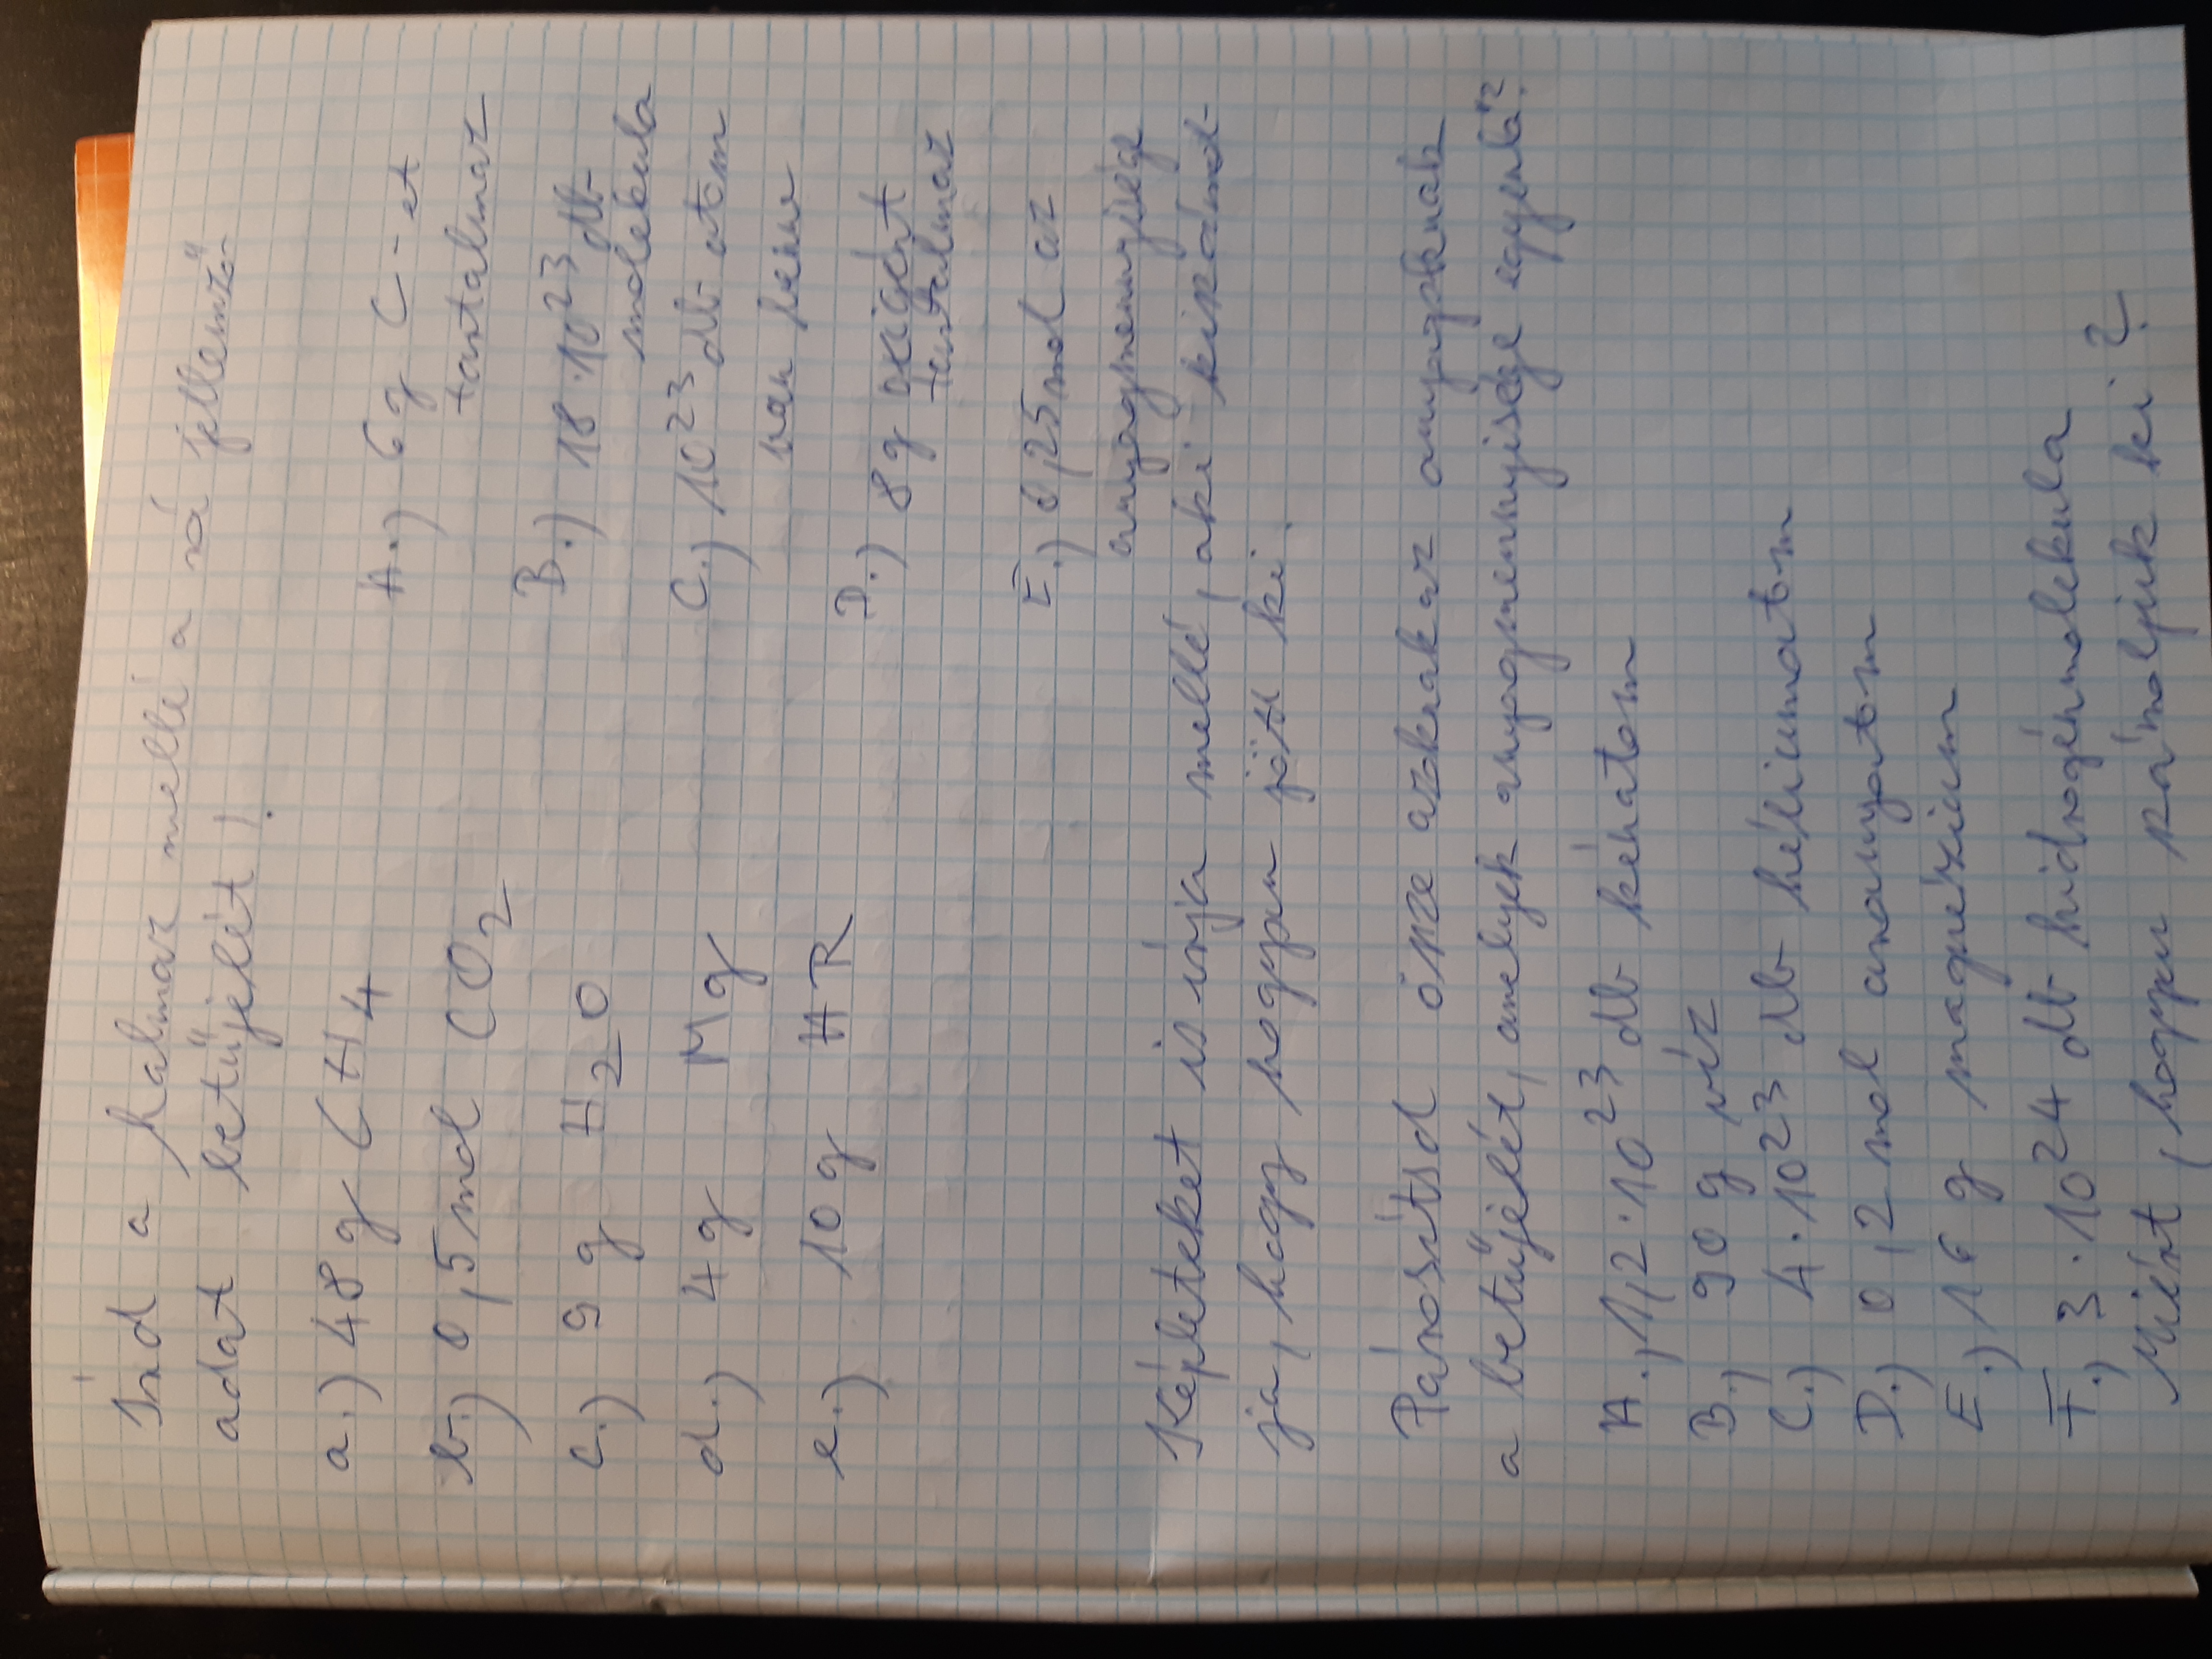 Írd a halmaz mellé a rá jellemző
adat betűjelét!
a.) 48 g CH4
A.) 6 g C-et
tartalmaz
b.) 0,5 mol CO2
B.) 18·10^23 db
molekula
c.) 9 g H2O
C.) 10^23 db atom
van benne
d.) 4 g Mg
D.) 8 g oxigént
tartalmaz
e.) 10 g AR
E.) 0,25 mol az
anyagmennyisége
Képleteket is írja mellé, aki kiszámol-
ja, hogy hogyan jött ki.
Párosítsd össze azoknak az anyagoknak
a betűjelét, amelyek anyagmennyisége egyenlő?
A.) 1,2·10^23 db kénatom
B.) 90 g víz
C.) 4·10^23 db héliumatom
D.) 0,2 mol aranyatom
E.) 16 g magnézium
F.) 3·10^24 db hidrogénmolekula
Miért, hogyan számoljuk ki?